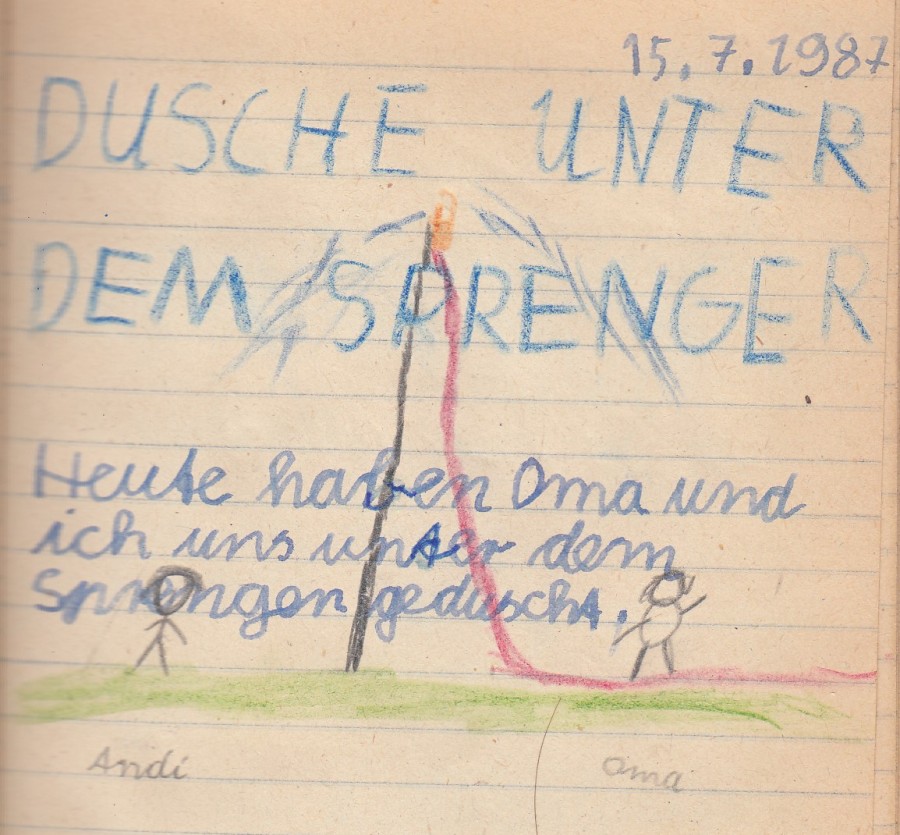 15.7.1987
DUSCHE UNTER
DEM SPRENGER
Heute haben Oma und
ich uns unter dem
Sprenger geduscht.
Andi Oma